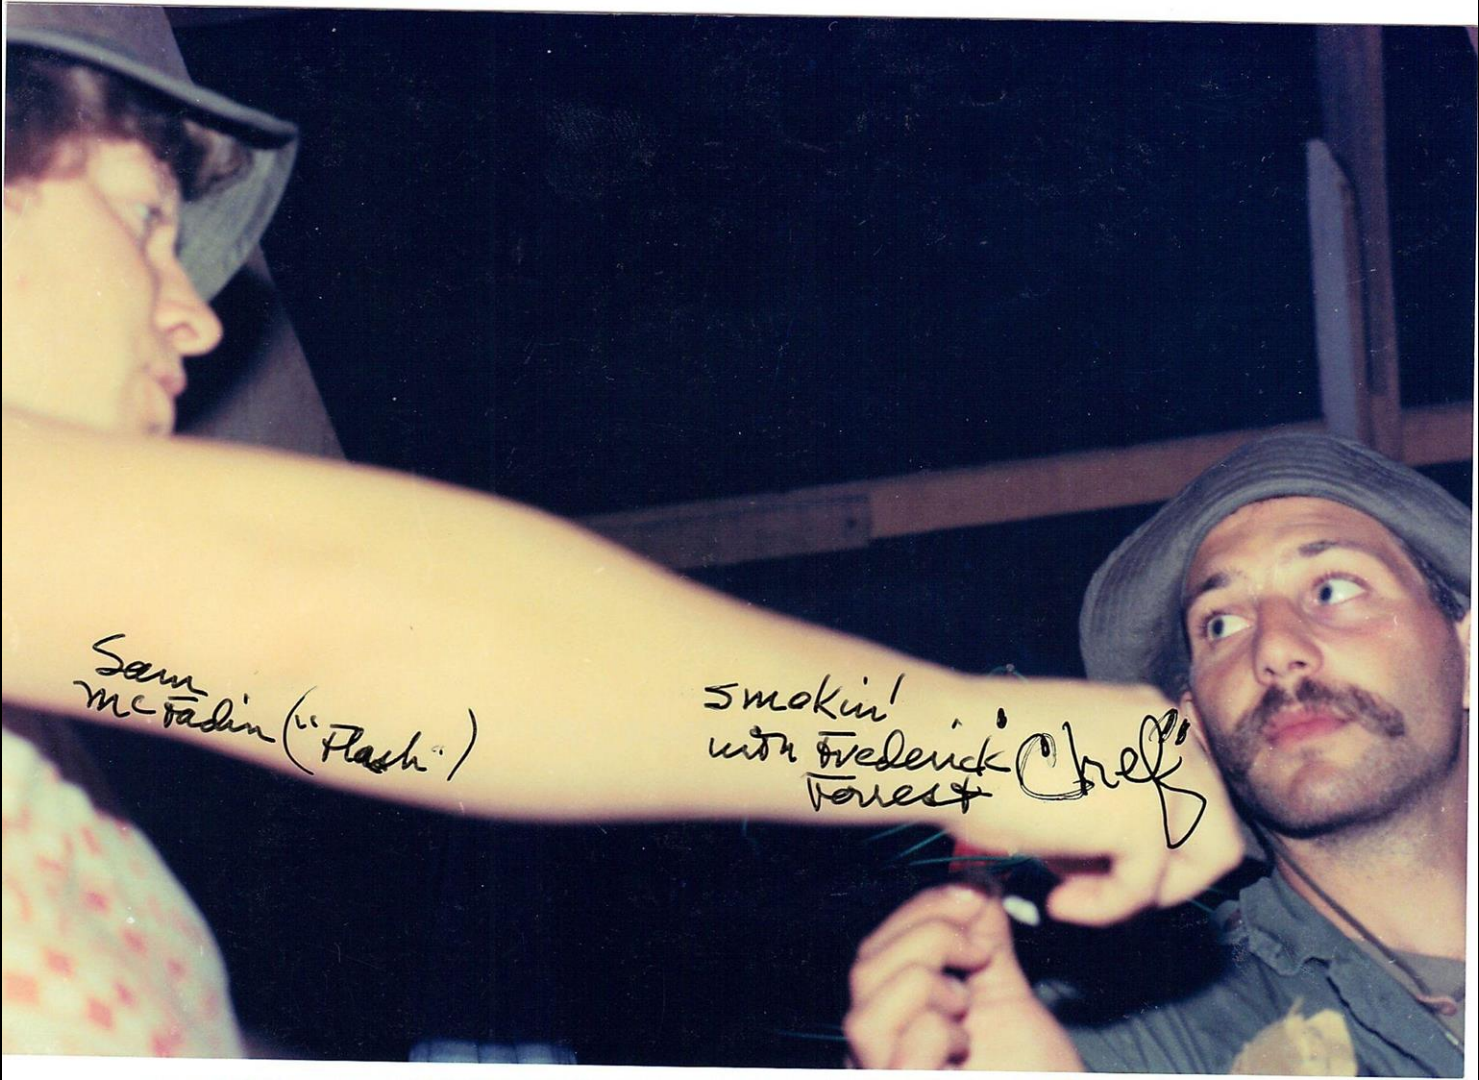 Sam
McFadin ("Flash")
smokin'
with Frederick "Chef"
Forrest